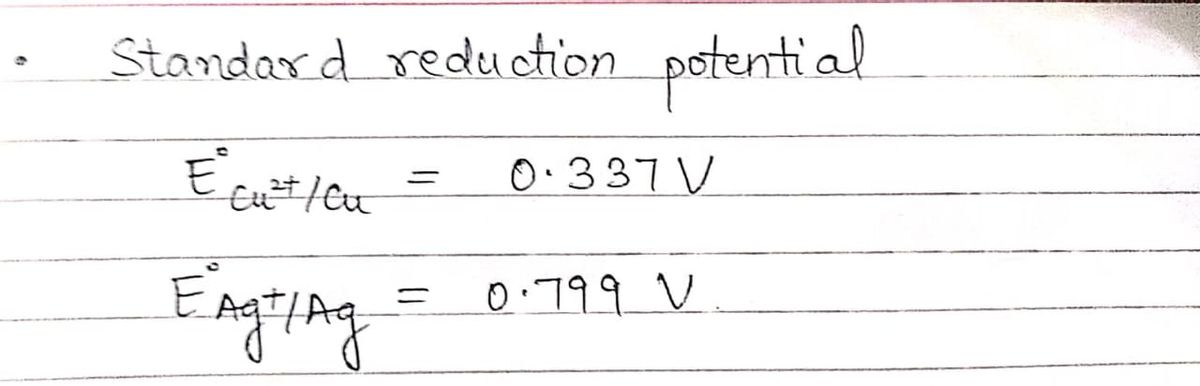 • Standard reduction potential
E°Cu²⁺/Cu = 0.337 V
E°Ag⁺/Ag = 0.799 V